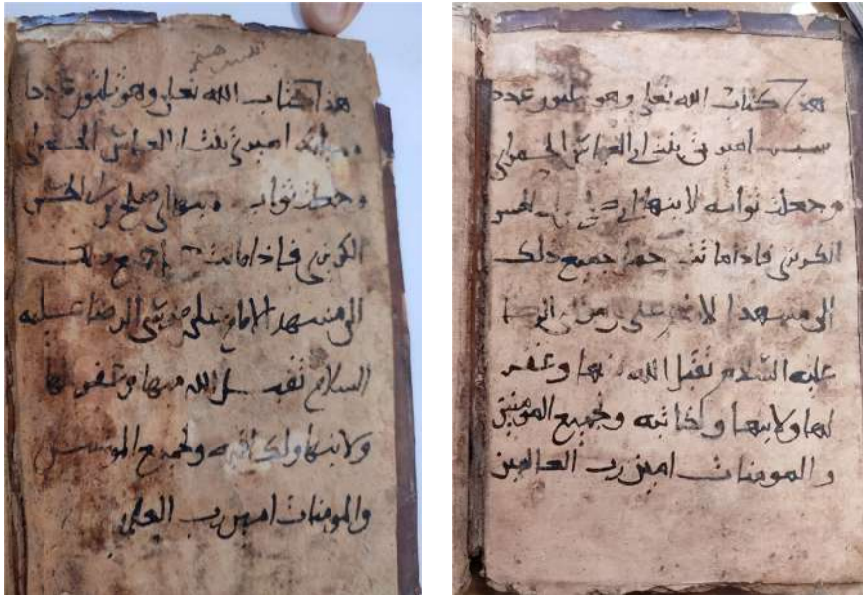 هذا كتاب الله تعلى وهو ثلثون عددا
بنت ابي العباس
وجعلت ثوابه لابنها ابي
فاذا ماتت حمل جميع ذلك
الى مشهد علي بن موسى الرضا
عليه السلام تقبل الله منها وغفر
لها ولابنها ولكاتبه ولجميع المومنين
والمومنات امين رب العالمين
هذا كتاب الله تعلى وهو ثلثون عددا
بنت ابي العباس
وجعلت ثوابه صلح بن الحسن
فاذا ماتت جميع ذلك
الى مشهد الامام علي بن موسى الرضا عليه
السلام تقبل الله منها وغفر لها
ولابنها ولكاتبه ولجميع المومنين
والمومنات امين رب العلمين